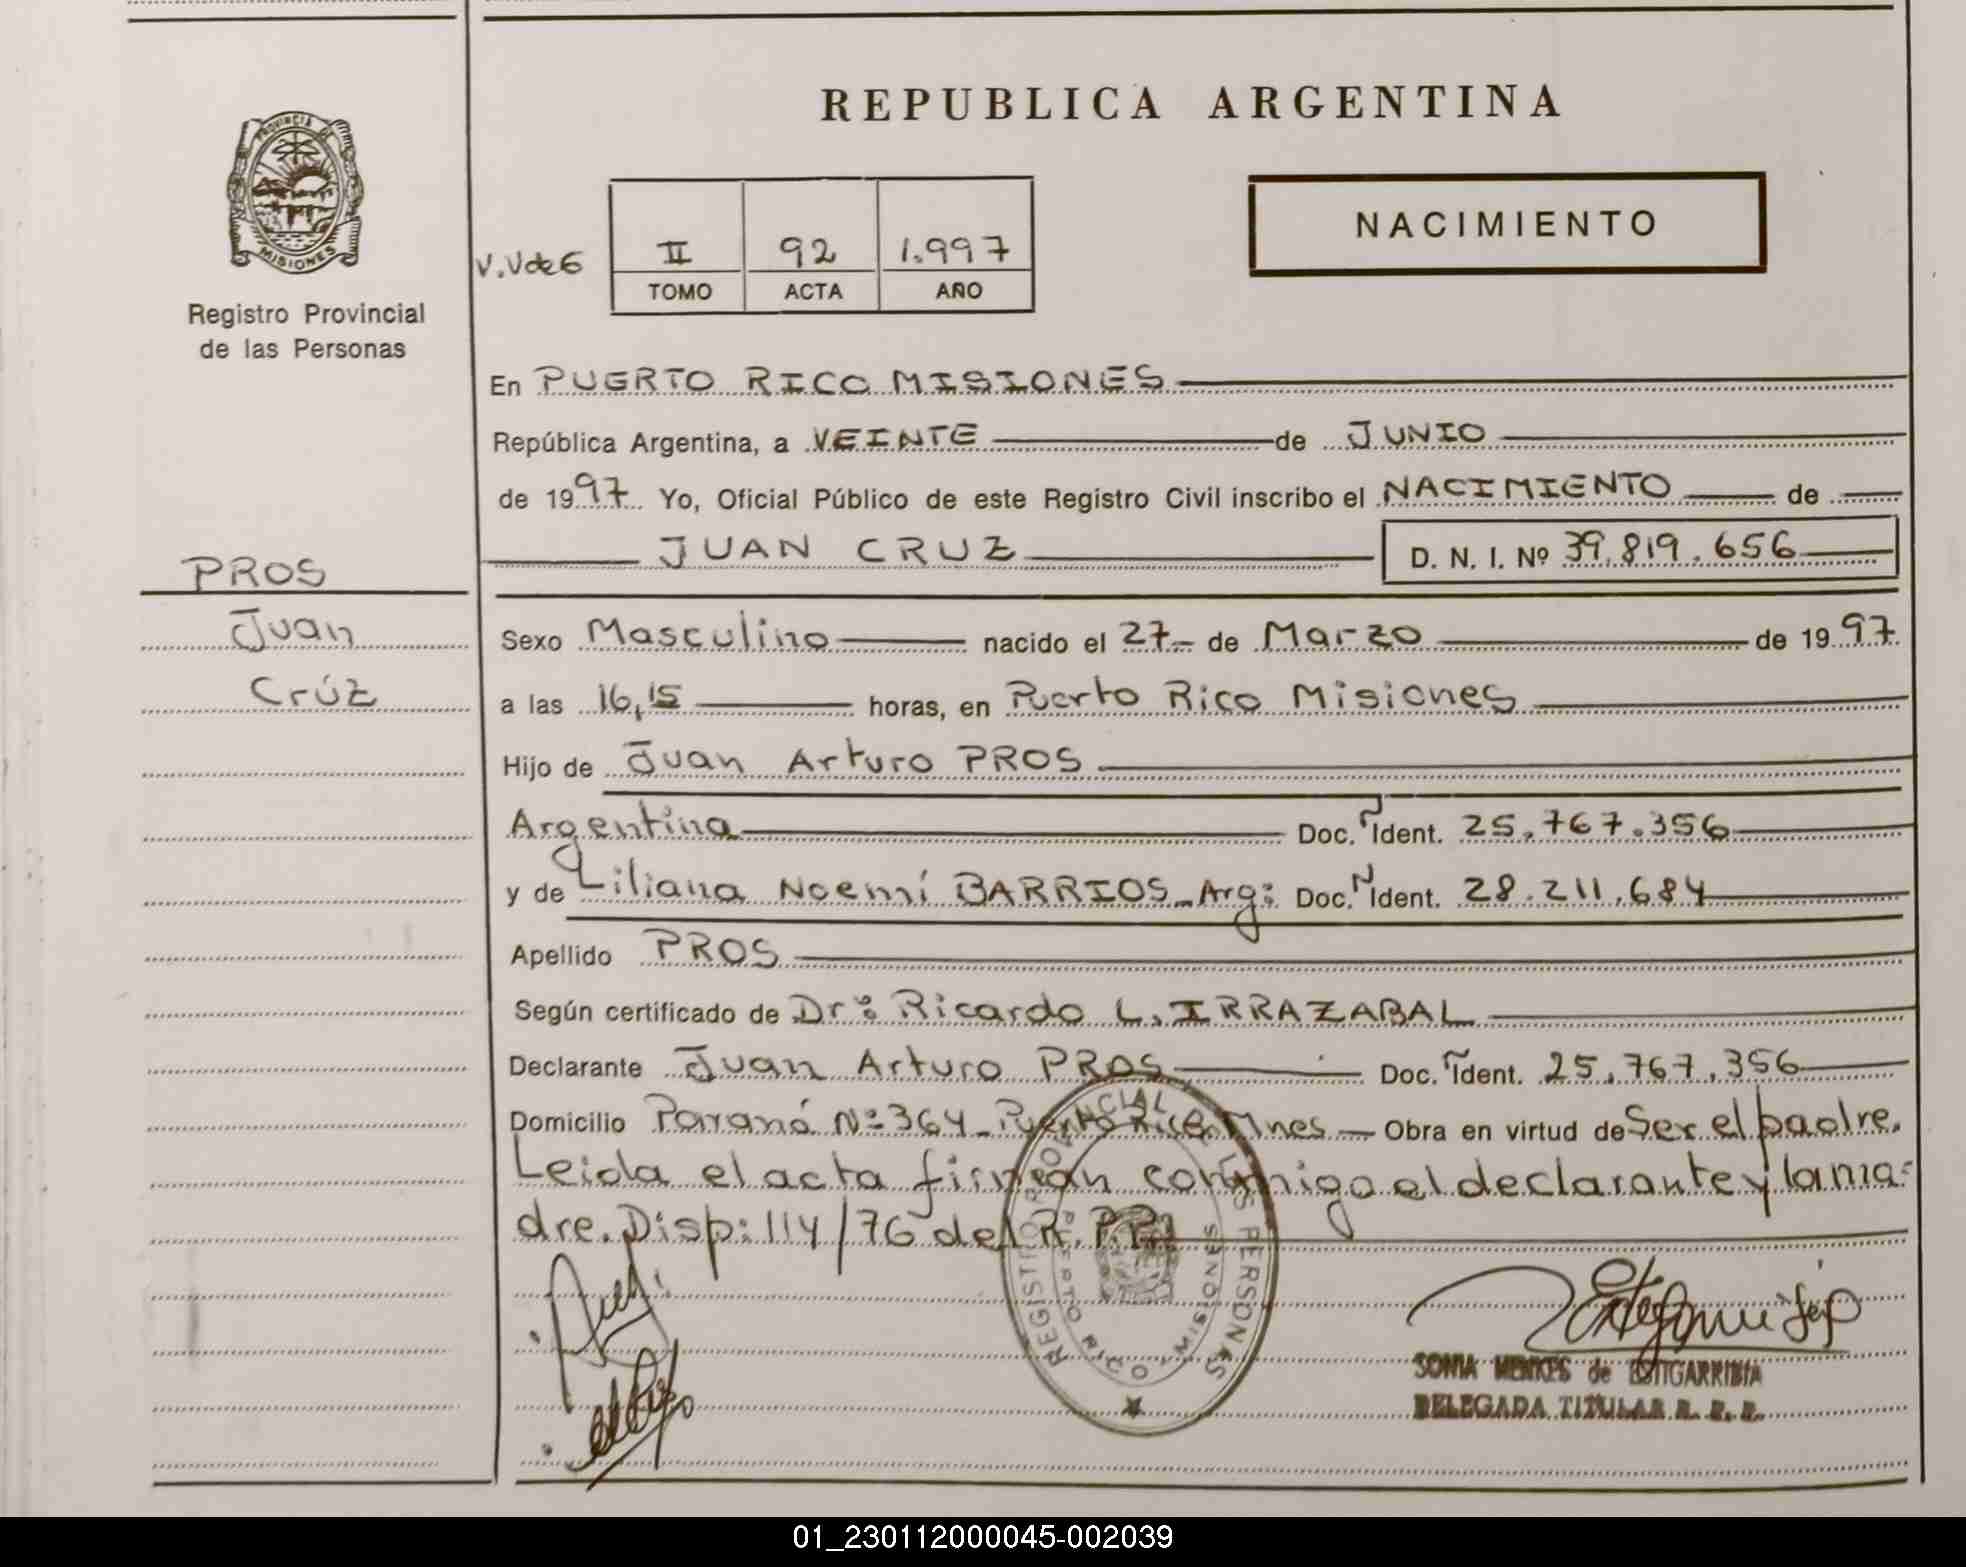 REPUBLICA ARGENTINA
PROVINCIA DE MISIONES
Registro Provincial
de las Personas
NACIMIENTO
V.V de G
II 92 1.997
TOMO ACTA AÑO
En PUERTO RICO MISIONES
República Argentina, a VEINTE de JUNIO
de 1997 Yo, Oficial Público de este Registro Civil inscribo el NACIMIENTO de
JUAN CRUZ D. N. I. Nº 39.819.656
PROS
Juan
Crúz
Sexo Masculino nacido el 27 de Marzo de 1997
a las 16,15 horas, en Puerto Rico Misiones
Hijo de Juan Arturo PROS
Argentina Doc. Ident. 25.767.356
y de Liliana Noemí BARRIOS - Arg: Doc. Ident. 28.211.684
Apellido PROS
Según certificado de Dr: Ricardo L. IRRAZABAL
Declarante Juan Arturo PROS Doc. Ident. 25.767.356
Domicilio Paraná Nº 364 - Puerto Rico Mnes - Obra en virtud de Ser el padre.
Leida el acta firman conmigo el declarante y la ma=
dre. Disp: 114/76 del R.P.P.
REGISTRO PROVINCIAL DE LAS PERSONAS
PUERTO RICO MISIONES
SONIA MENKES de ESTIGARRIBIA
DELEGADA TITULAR R. P. P.
01_230112000045-002039